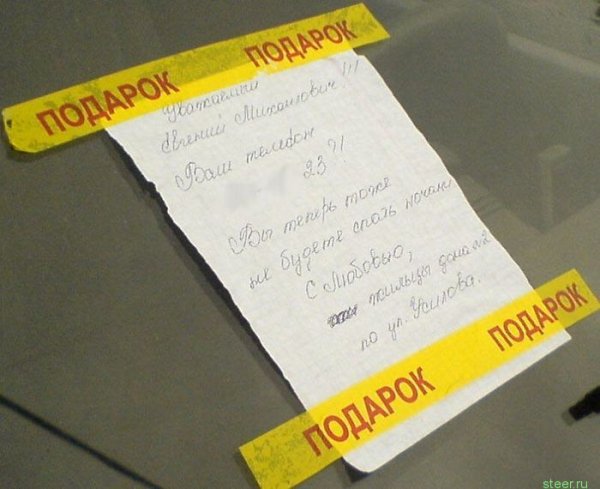 ПОДАРОК ПОДАРОК
Уважаемый
Евгений Михайлович!!!
Ваш телефон
23 91
Вы теперь тоже
не будете спать ночами
С Любовью,
жильцы дома №2
по ул. Усилова.
ПОДАРОК ПОДАРОК
steer.ru